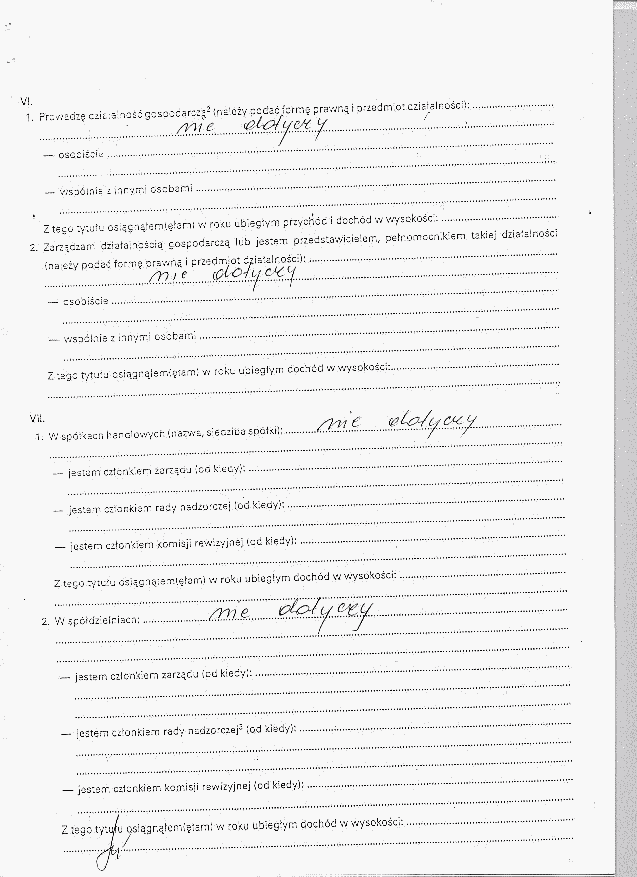 VI.
1. Prowadzę działalność gospodarczą² (należy podać formę prawną i przedmiot działalności): ..........
nie dotyczy
— osobiście ..........
— wspólnie z innymi osobami ..........
Z tego tytułu osiągnąłem(ęłam) w roku ubiegłym przychód i dochód w wysokości: ..........
2. Zarządzam działalnością gospodarczą lub jestem przedstawicielem, pełnomocnikiem takiej działalności
(należy podać formę prawną i przedmiot działalności): ..........
nie dotyczy
— osobiście ..........
— wspólnie z innymi osobami ..........
Z tego tytułu osiągnąłem(ęłam) w roku ubiegłym dochód w wysokości: ..........
VII.
1. W spółkach handlowych (nazwa, siedziba spółki): .......... nie dotyczy
— jestem członkiem zarządu (od kiedy): ..........
— jestem członkiem rady nadzorczej (od kiedy): ..........
— jestem członkiem komisji rewizyjnej (od kiedy): ..........
Z tego tytułu osiągnąłem(ęłam) w roku ubiegłym dochód w wysokości: ..........
2. W spółdzielniach: .......... nie dotyczy
— jestem członkiem zarządu (od kiedy): ..........
— jestem członkiem rady nadzorczej³ (od kiedy): ..........
— jestem członkiem komisji rewizyjnej (od kiedy): ..........
Z tego tytułu osiągnąłem(ęłam) w roku ubiegłym dochód w wysokości: ..........